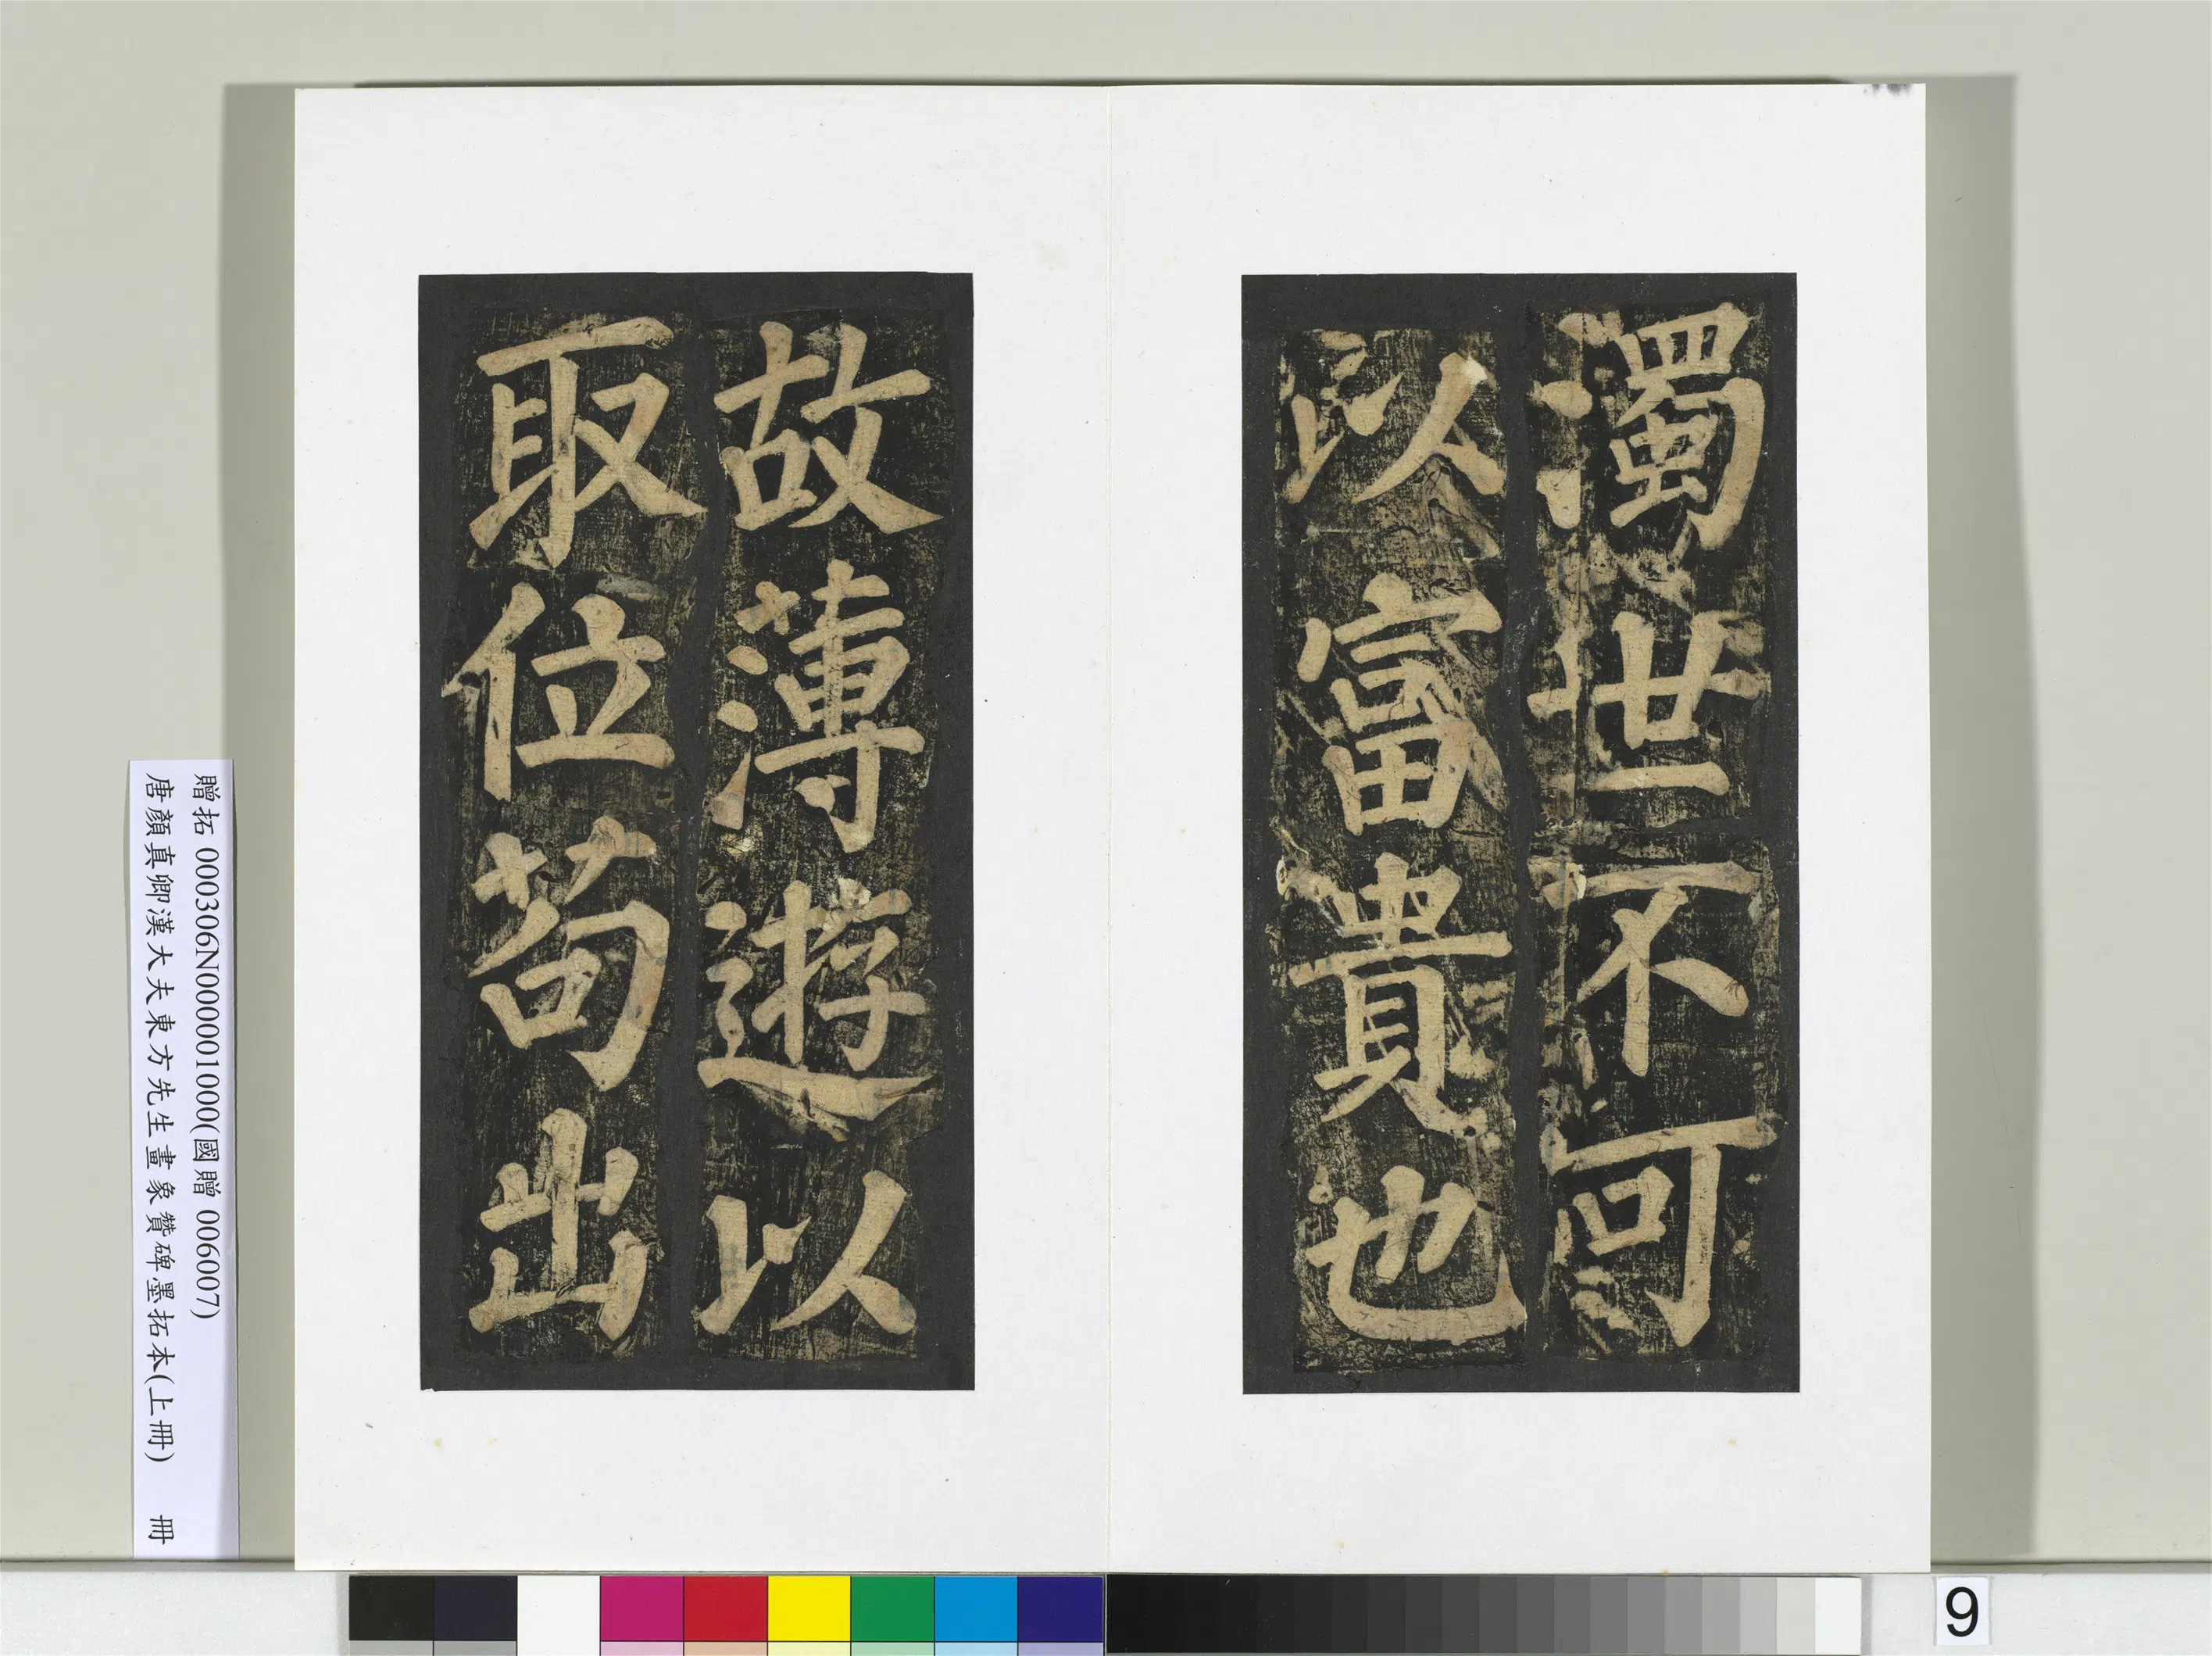 濁世不可
以富貴也
故薄遊以
取位苟出
贈拓 000306N000001000(國贈 006007)
唐顏真卿漢大夫東方先生畫象贊碑墨拓本(上冊) 冊
9